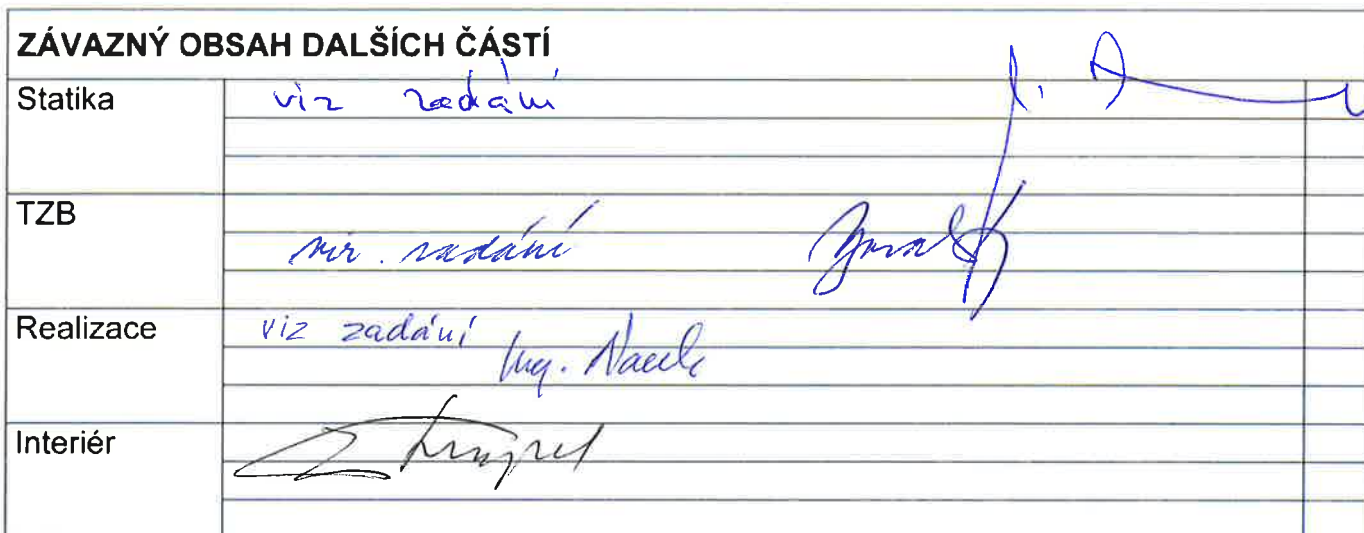 ZÁVAZNÝ OBSAH DALŠÍCH ČÁSTÍ
Statika viz zadání
TZB viz. zadání
Realizace viz zadání
Ing.
Interiér